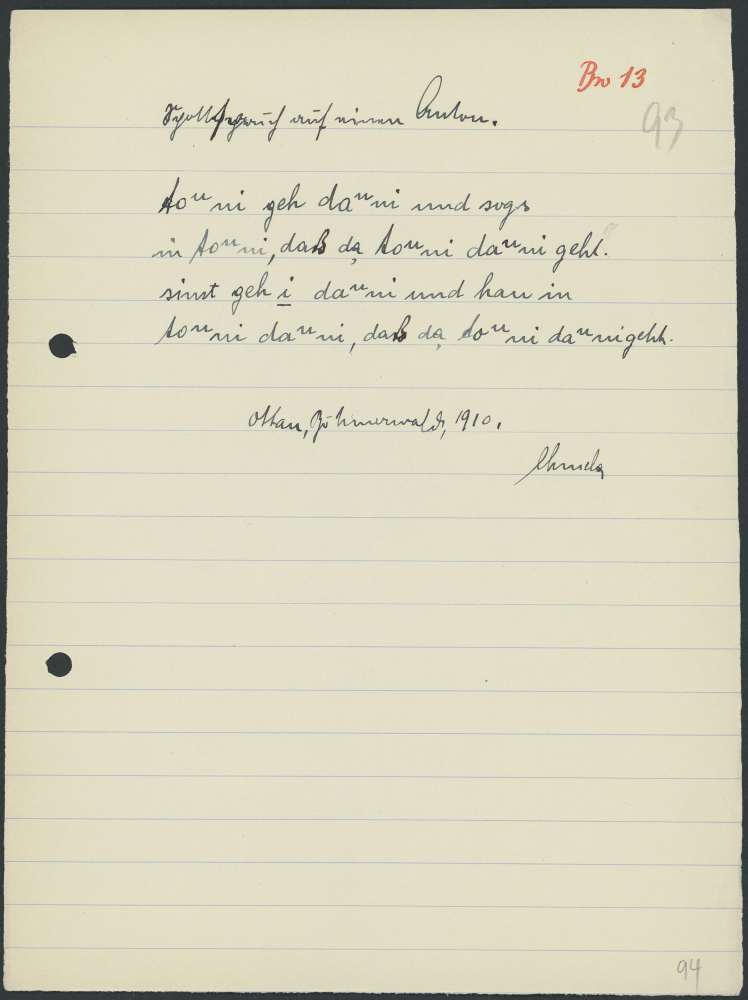 Bw 13
93
Spottspruch auf einen Anton.
toᵘni geh daᵘni und sogs
in toᵘni, daß da̤ toᵘni daᵘni geht.
sinst geh i daᵘni und hau in
toᵘni daᵘni, daß da̤ toᵘni daᵘni geht.
Ottau, Böhmerwald, 1910.
Chmela
94